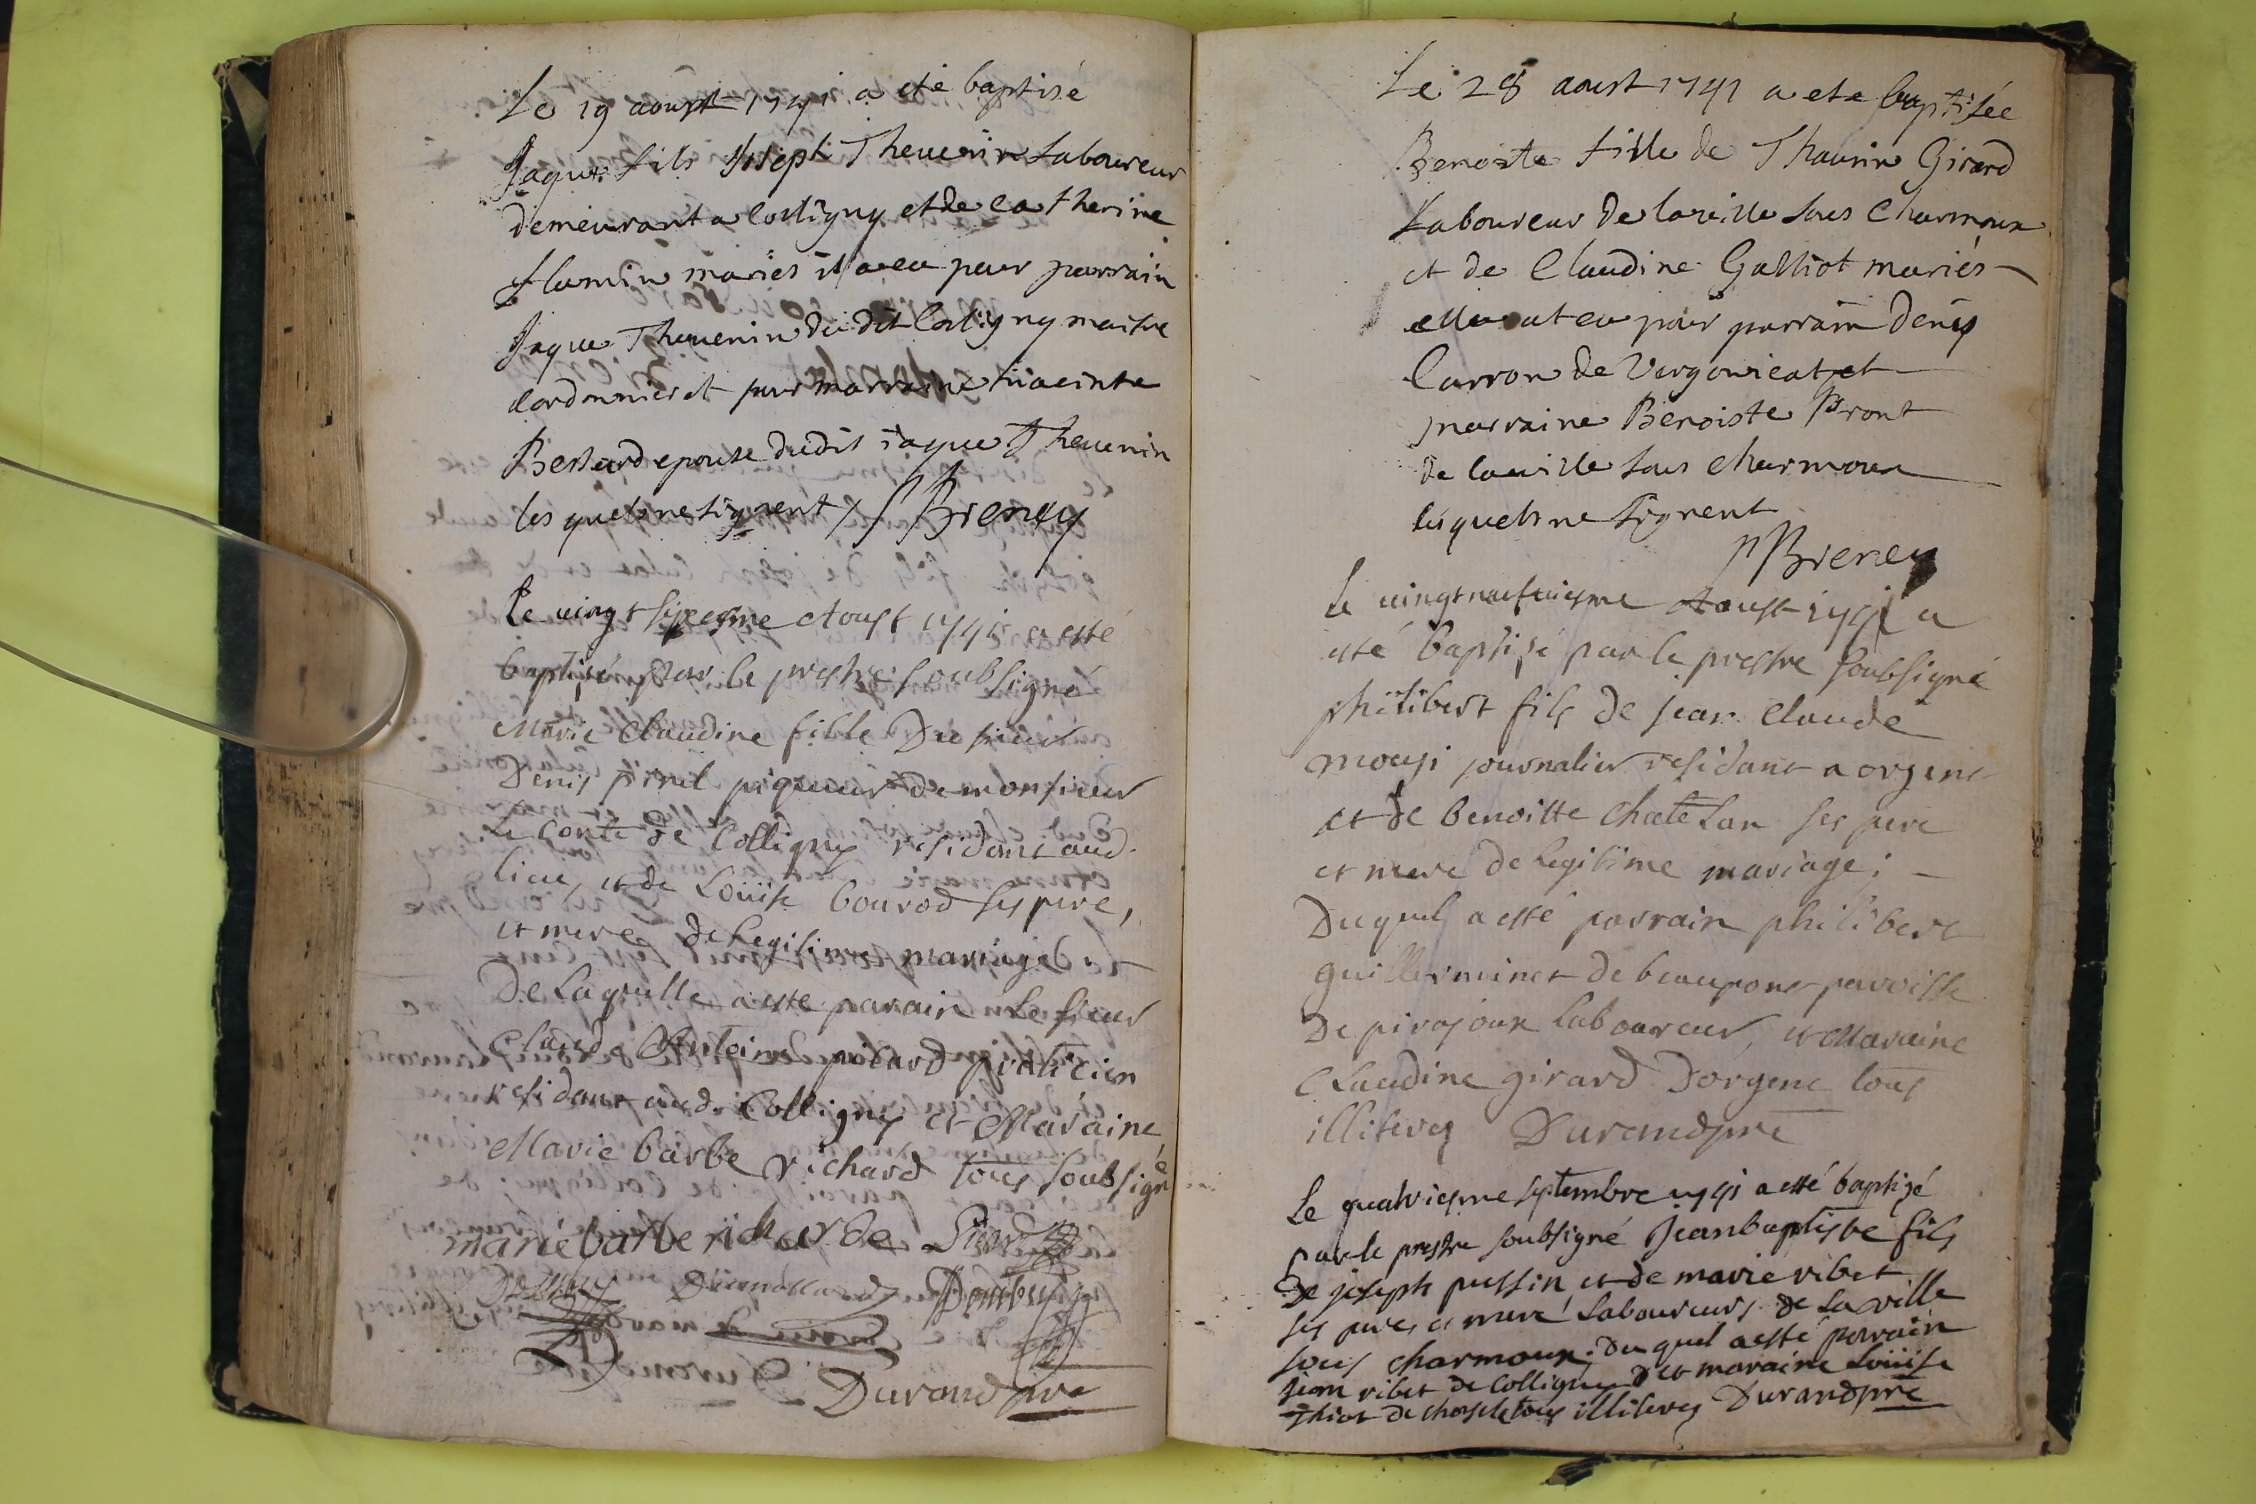 Le 19 aoust 1741 a eté baptisé
Jaque fils Joseph Thevenin Laboureur
demeurant a Colligny et de Catherine
mariés il a eu pour parrain
Jaque Thevenin du dit Coligny maitre
Cordonnier et pour marraine hiacinte
Bessard epouse dudit jaque Thevenin
les quels ne signent / Breney
Le vingt sixiesme Aoust 1741 a esté
baptisée par le prestre soubsigné
Marie Claudine fille Du sieur
Denis piqueur de monsieur
Le Conte de Colligny residant aud.
lieu, et de Loüise bourod ses pere,
et mere de Legitime mariage
De Laquelle a esté parain Le sieur
Claude Antoine picard praticien
residant aud. Colligny et Maraine
Marie barbe richard tous soubsigné
marie barbe richarde
Durand pre
Le 28 aoust 1741 a ete baptisée
Benoiste fille de Thaurin Girard
Laboureur de la ville sous Charmoux
et de Claudine Galliot mariés
elle at eu pour parrain denis
Carron de et
marraine Benoiste Pront
de la ville sous charmoux
lesquels ne signent
Breney
Le vingt neufviesme Aoust 1741 a
esté baptisé par le prestre soubsigné
philibert fils de jean Claude
journalier residant a
et de benoitte Chatelan ses pere
et mere de legitime mariage;
Duquel a esté parrain philibert
guillerminet de beaupont parroisse
De pirajoux Laboureur, et Maraine
Claudine girard tous
illiteres Durand pre
Le quatriesme septembre 1741 a esté baptizé
par le prestre soubsigné Jean baptiste fils
De joseph pussin et de marie ribet
ses pere, et mere Laboureurs de La ville
sous charmoux. Du quel a esté parrain
jean ribet de Colligny et maraine Loüise
de tous illiteres Durand pre